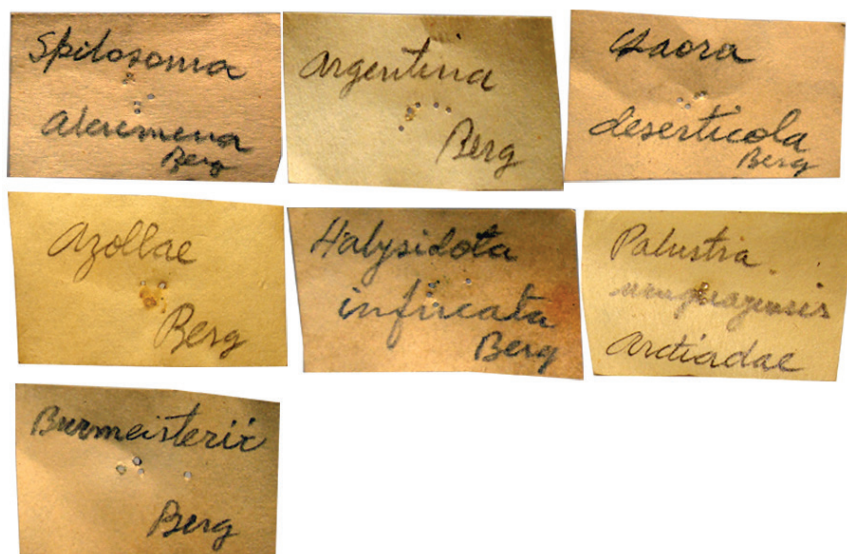 Spilosoma
Alcumena
Berg
Argentina
Berg
deserticola
Berg
Azollae
Berg
Halysidota
infucata
Berg
Palustra
uruguayensis
Arctiadae
Burmeisterii
Berg